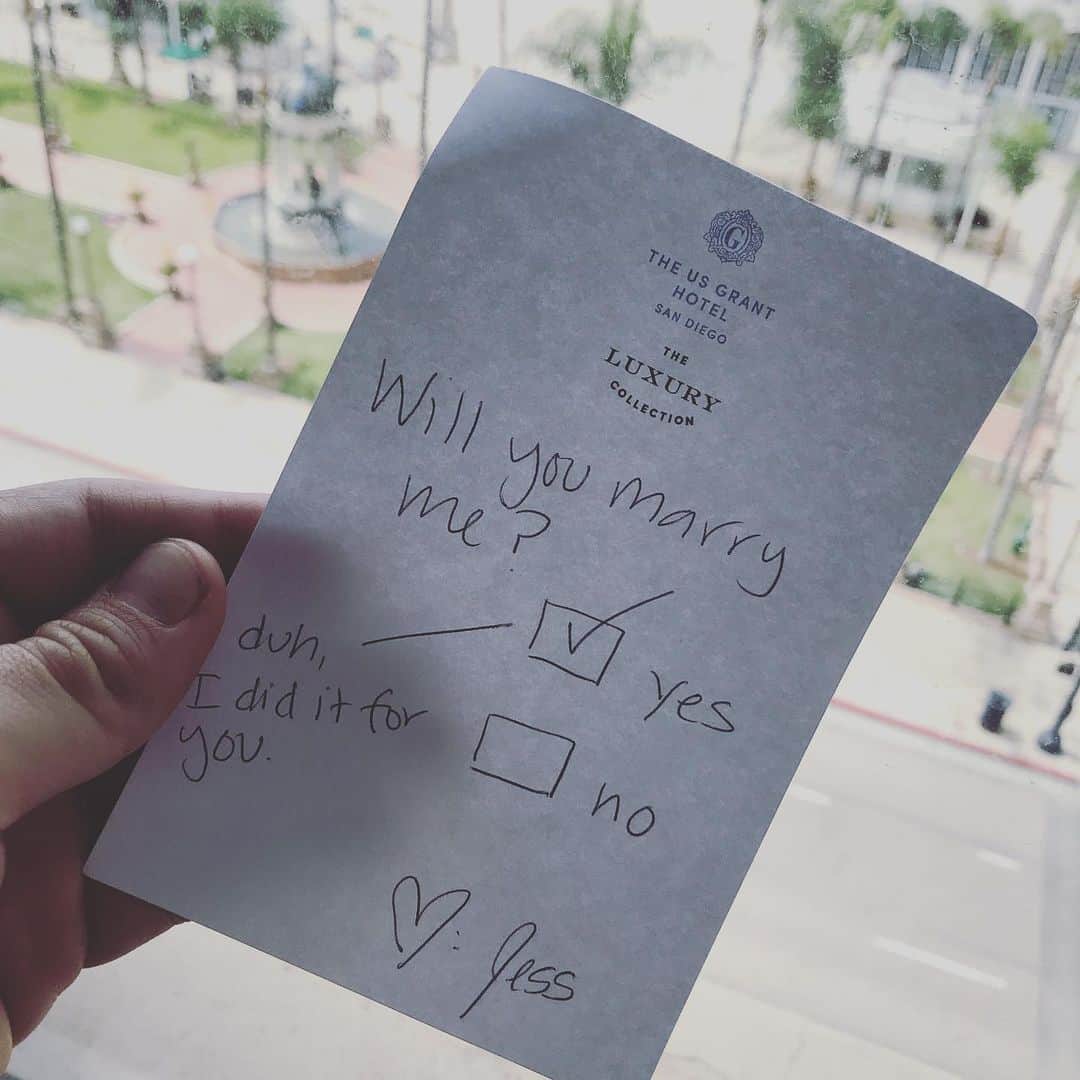 G
THE US GRANT
HOTEL
SAN DIEGO
THE
LUXURY
COLLECTION
Will you marry
me?
duh,
I did it for
you.
yes
no
♡: Jess